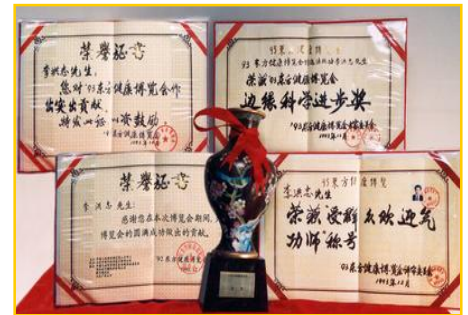 荣誉证书
李洪志先生：
您对'93东方健康博览会作
出突出贡献，
特发此证，以资鼓励。
1993年12月
93东方健康博览会
荣获'93东方健康博览会
边缘科学进步奖
'93东方健康博览会评审委员会
1993年12月
荣誉证书
李洪志先生：
感谢您在本次博览会期间，
博览会的圆满成功做出的贡献。
'93东方健康博览
93东方健康博览
李洪志先生：
荣获受群众欢迎气
功师称号
93东方健康博览会评审委员会
1993年12月